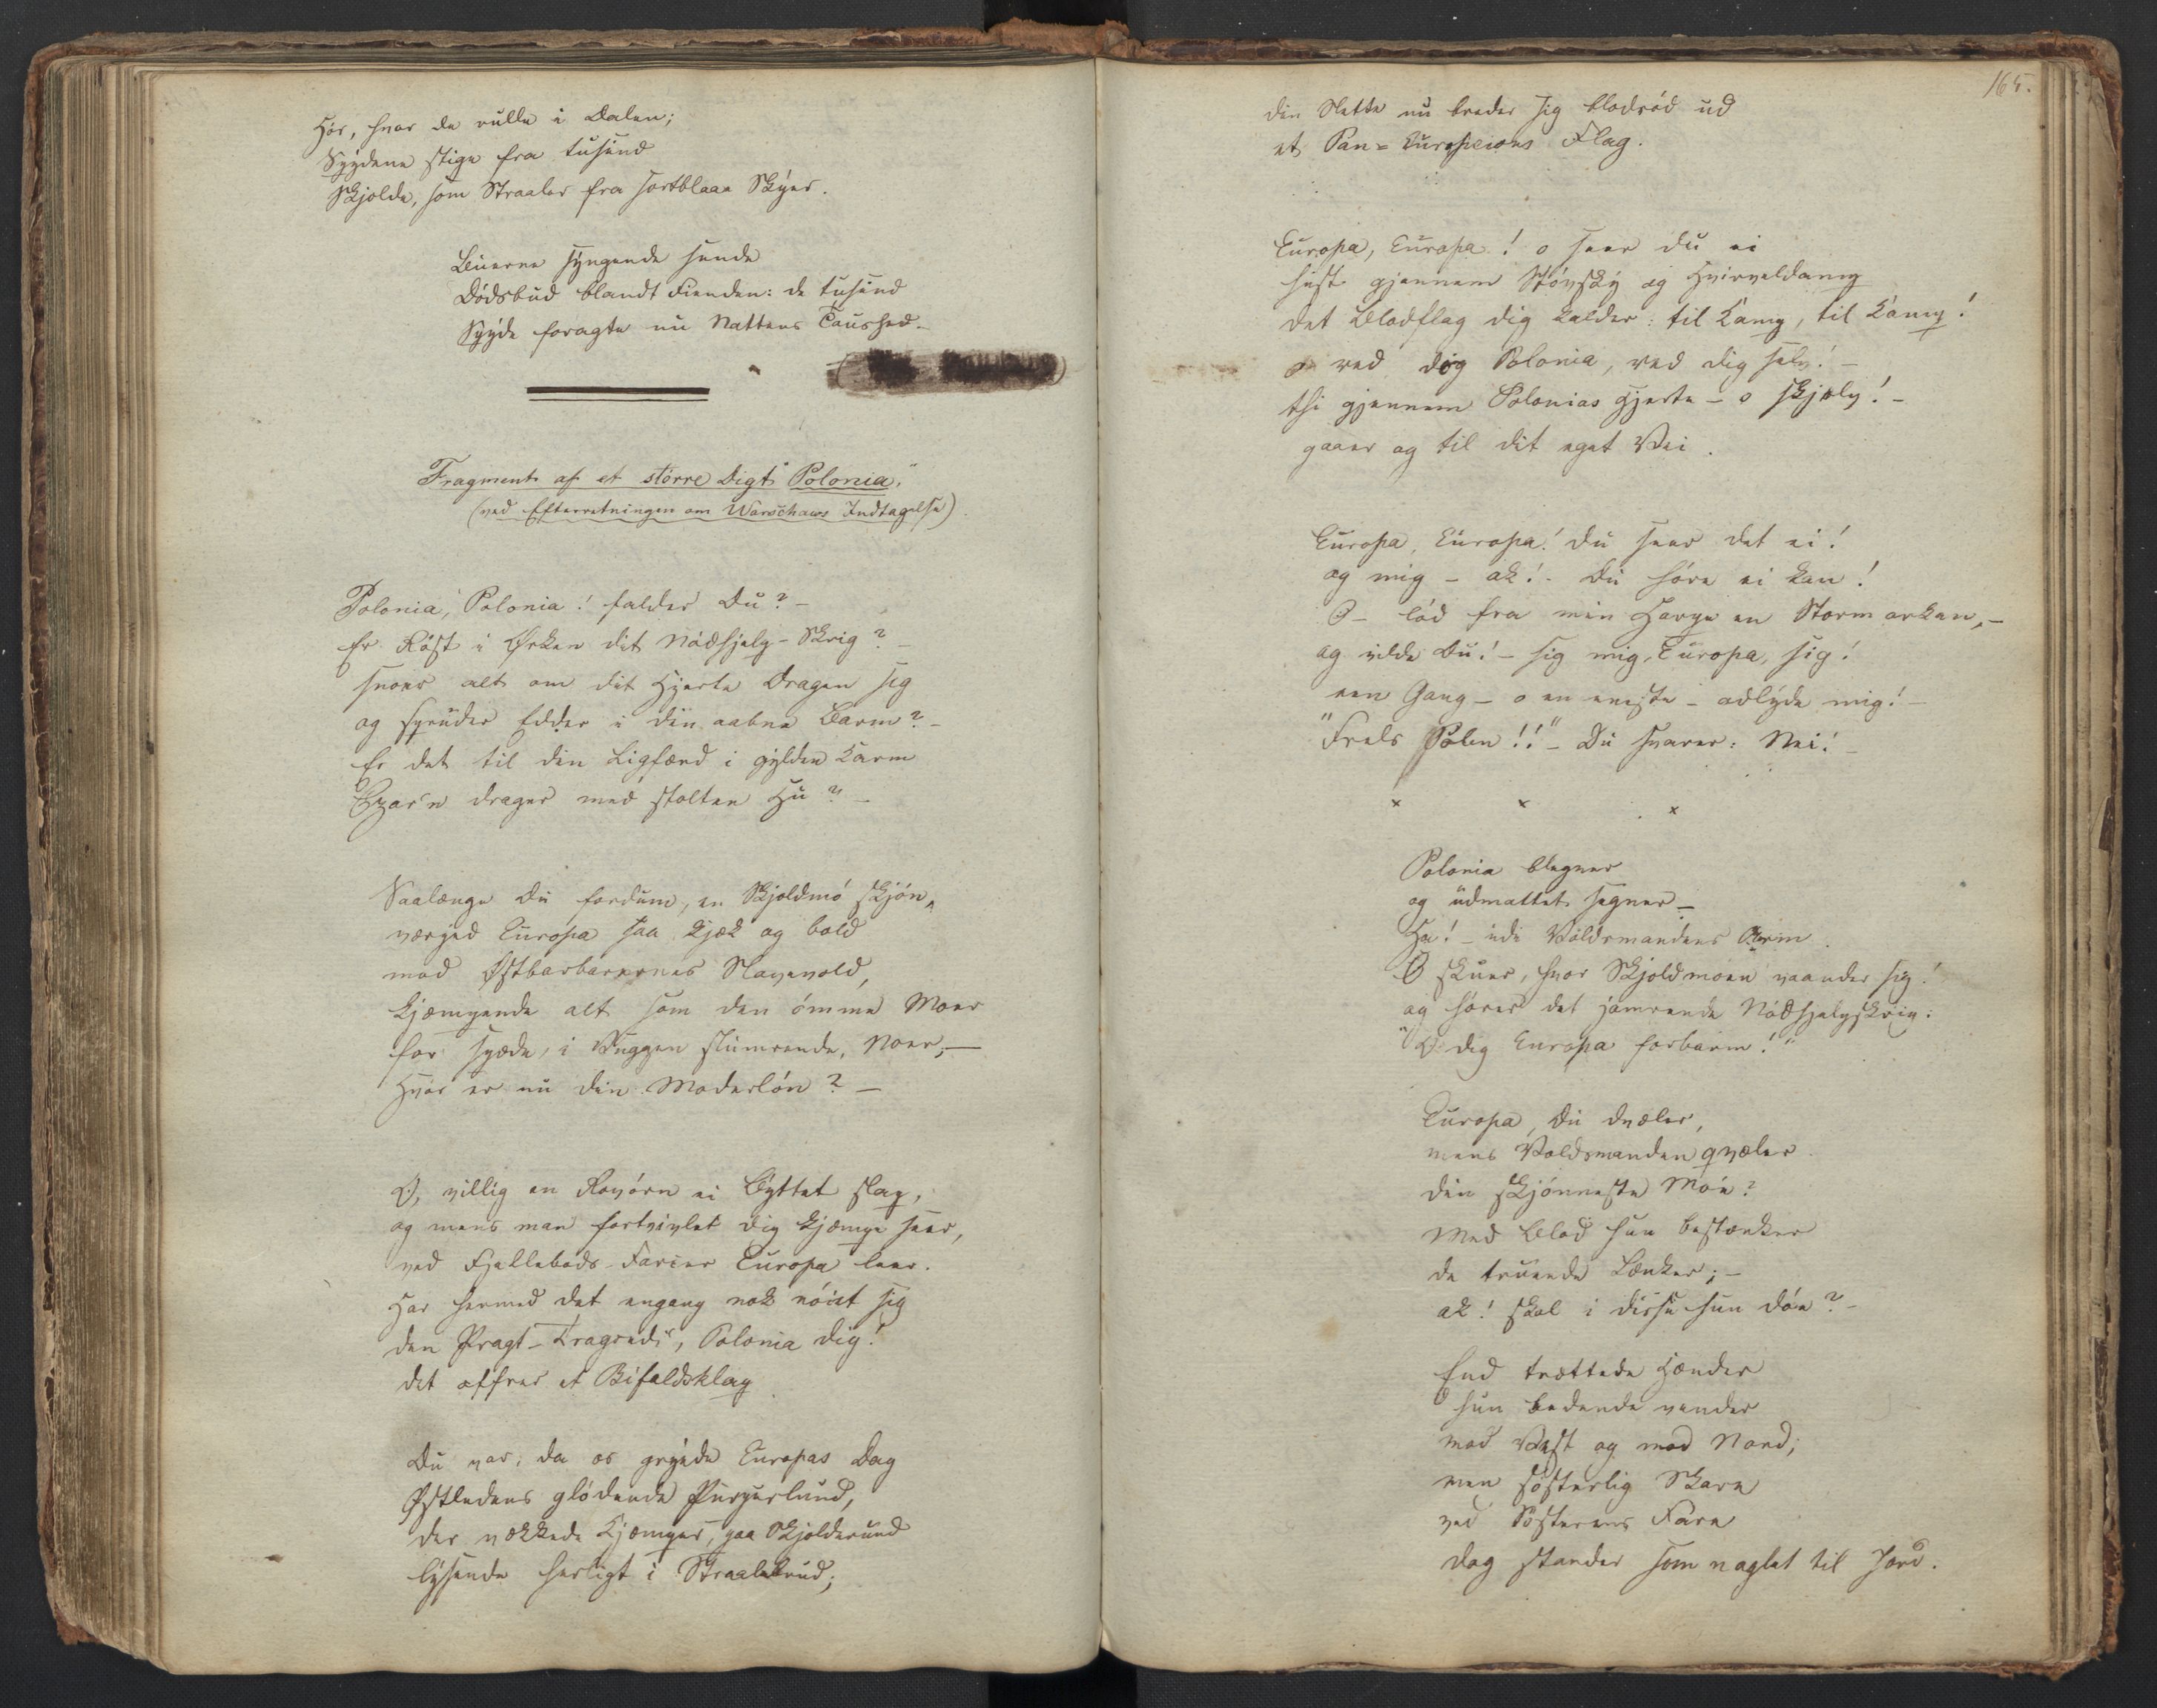 Hör, hvor de rulle i Dalen;
Spydene stige fra tusind
Skjolde, som Straaler fra sortblaae Skyer.
Buerne syngende sende
Dödsbud blandt Fienden: de tusind
Spyde foragte nu Nattens Taushed.
Fragment af et större Digt "Polonia".
(ved Efterretningen om Warschaus Indtagelse).
Polonia, Polonia! falder Du? –
Er Röst i Örken dit Nödhjelp-Skrig? –
snoer alt om dit Hjerte Dragen sig
og spruder Edder i din aabne Barm? –
Er det til din Ligfærd i gylden Karm
Czar'n drager med stolten Hu? –
Saalænge Du fordum, en Skjoldmö skjön,
værged Europa saa kjæk og bold
mod Östbarbarernes Slavevold,
kjæmpende alt som den ömme Moer
for spæde, i Vuggen slumrende, Noer; –
Hvor er nu din Moderlön? –
O, villig en Rovörn ei Byttet slap,
og mens man fortvivlet dig kjæmpe seer,
ved Fjellebods-Farcer Europa leer.
Har hermed det engang nok nöiet sig
den Pragt-Tragredi, Polonia dig!
det offrer et Bifaldsklap
Du var, da os gryede Europas Dag
Östledens glödende Purpurlund,
der vækkede Kjæmper, paa Skjolderund
lysende herligt i Straalebrud;
165.
din Slette nu breder sig blodröd ud
et Pan-Europæions Flag.
Europa, Europa! o seer du ei
hist gjennem Stövsky og Hvirveldamp
det Blodflag dig kalder: til Kamp, til Kamp!
o red dog Polonia, red dig selv! –
thi gjennem Polonias Hjerte – o skjælv! –
gaaer og til dit eget Vei.
Europa, Europa! Du seer det ei!
og mig – ak! – Du höre ei kan!
O – löd fra min Harpe en Stormorkan, –
og vilde Du! – sig mig, Europa, sig!
een Gang – o en eneste – adlyde mig! –
"Frels Polen!!" – Du svarer: Nei! –
x x x
Polonia blegner
og udmattet segner –
Ha! – udi Voldsmandens Arm.
O skuer, hvor Skjoldmoen vaander sig!
og hörer det jamrende Nödhjelpskrig:
"O dig Europa forbarm!"
Europa, Du dvæler,
mens Voldsmanden qvæler
din skjönneste Möe?
Med Blod hun bestænker
de truende Lænker; –
ak! skal i disse hun döe? –
End trættede Hænder
hun bedende vender
mod Vest og mod Nord;
men sösterlig Skare
ved Sösterens Fare
dog stander som naglet til Jord.